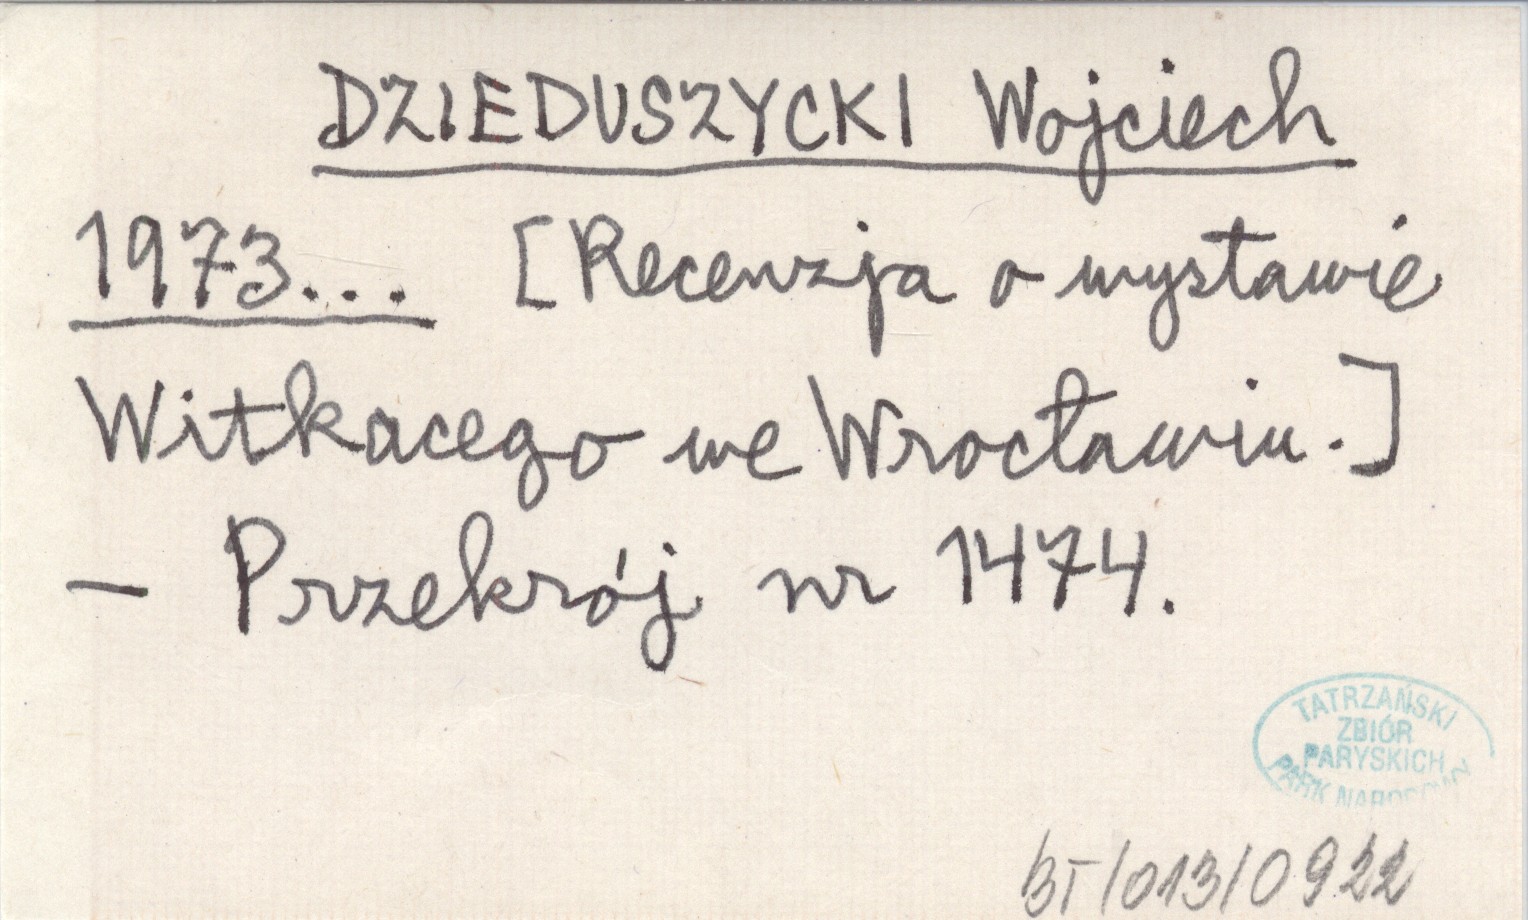 DZIEDUSZYCKI Wojciech
1973... [Recenzja o wystawie
Witkacego we Wrocławiu.]
– Przekrój nr 1474.
TATRZAŃSKI
ZBIÓR
PARYSKICH
PARK NARODOWY
BT/013/0922